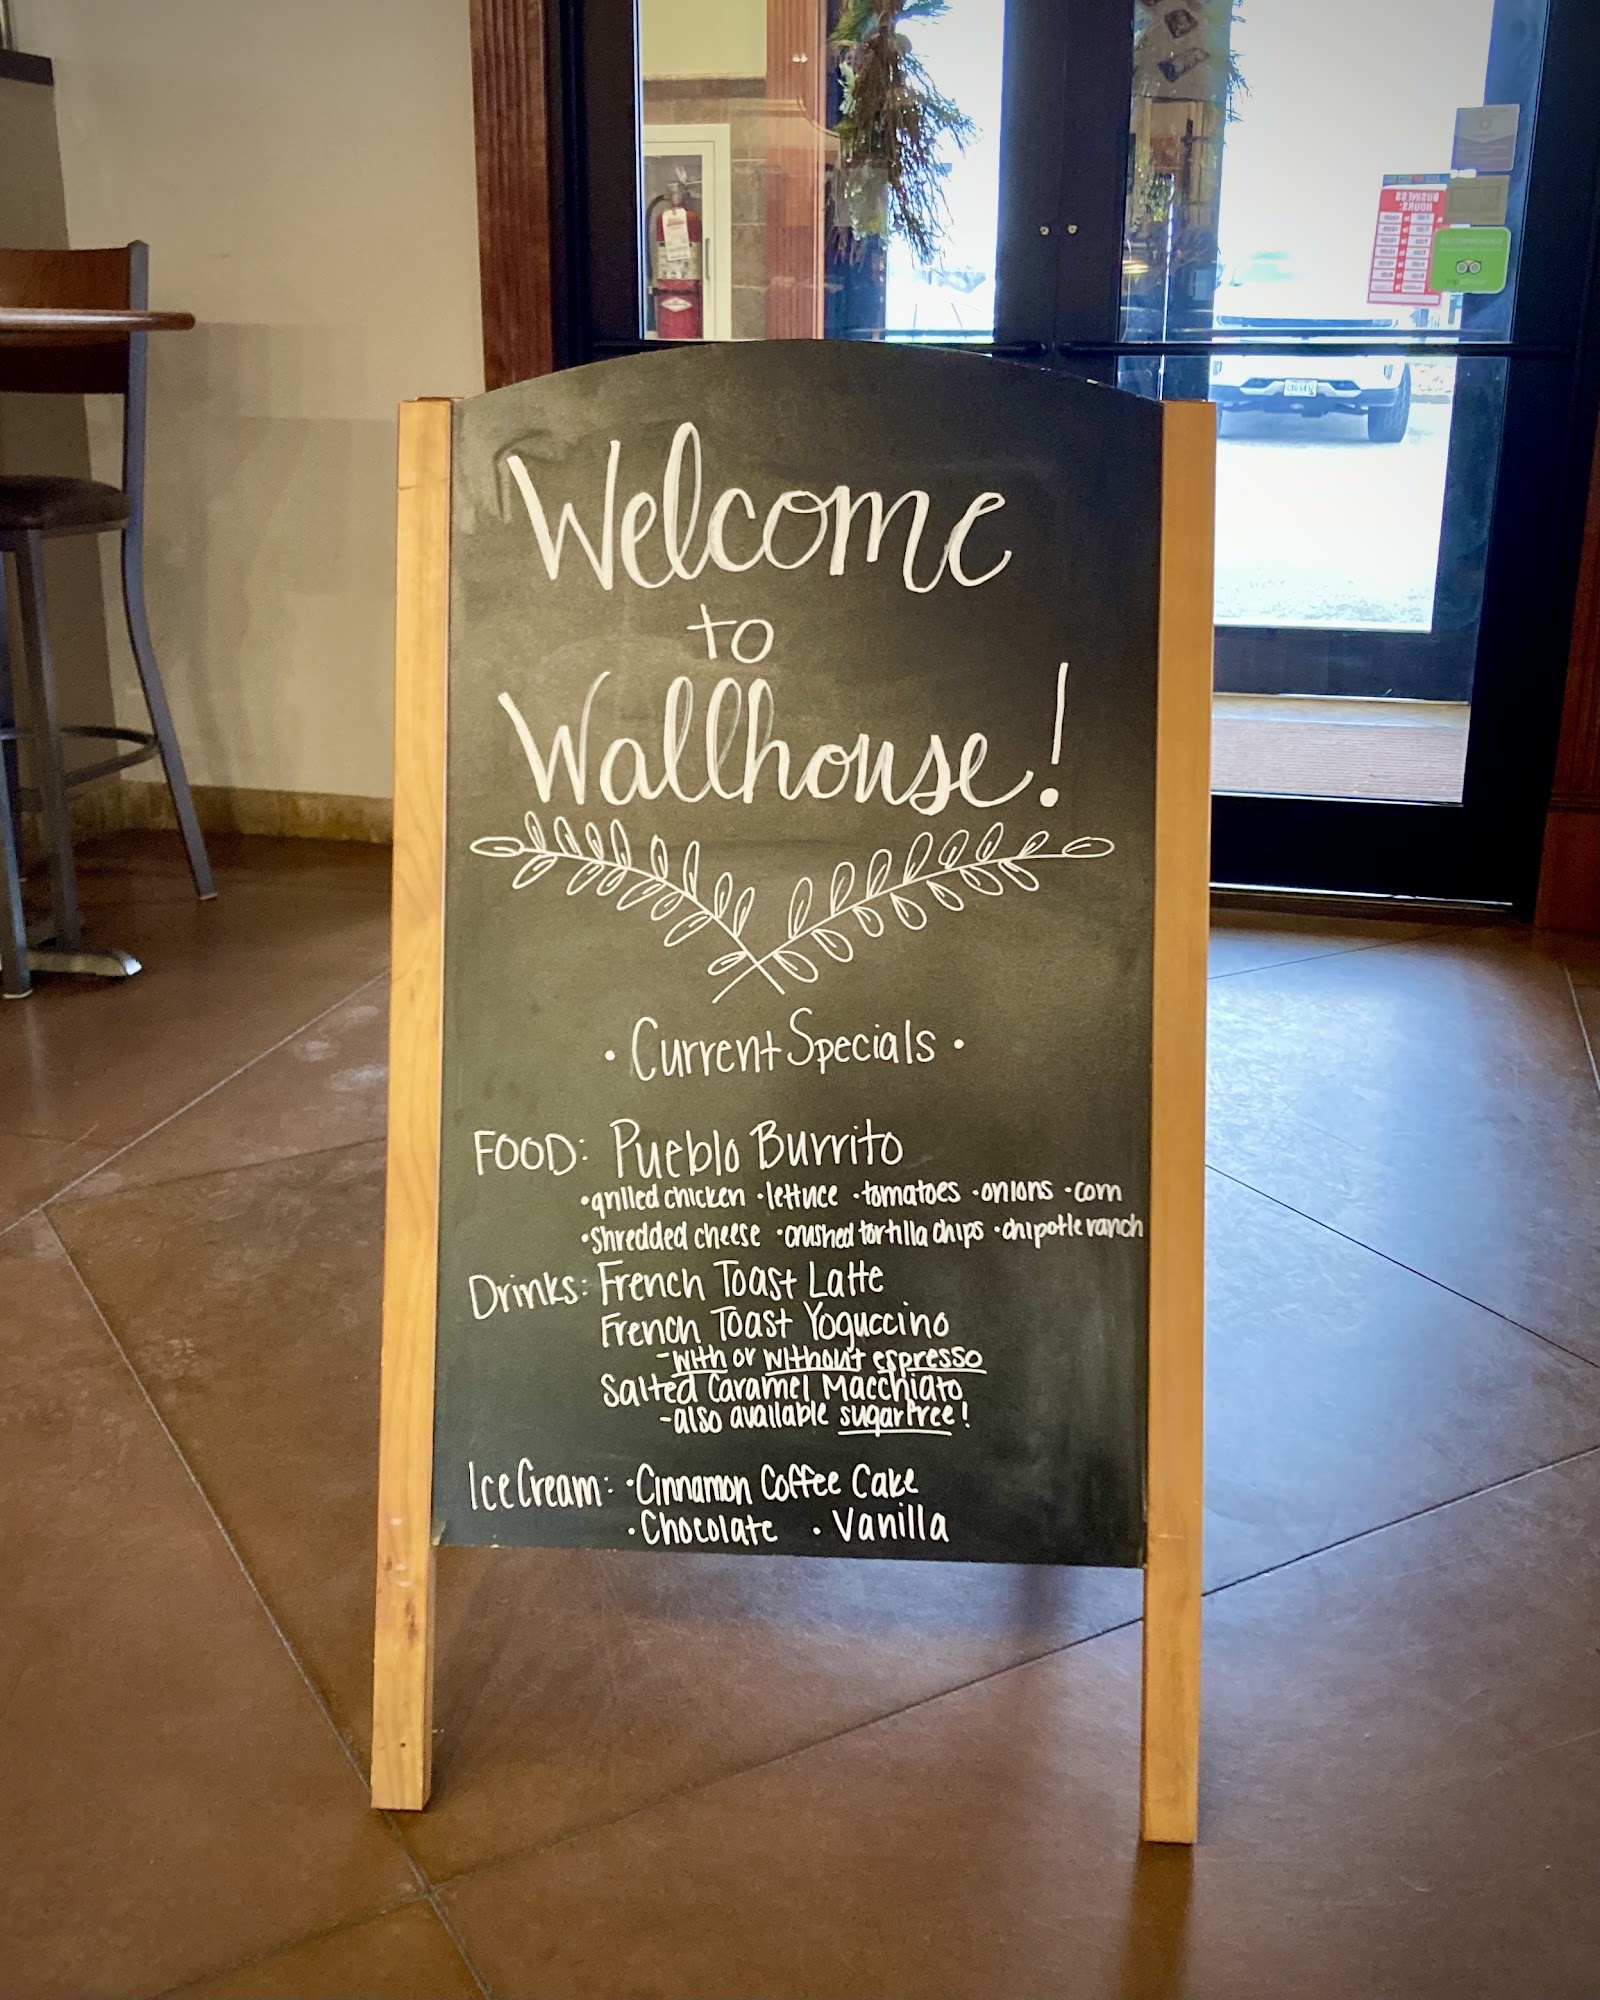 Welcome
to
Wallhouse!
• Current Specials •
FOOD: Pueblo Burrito
•grilled chicken •lettuce •tomatoes •onions •corn
•shredded cheese •crushed tortilla chips •chipotle ranch
Drinks: French Toast Latte
French Toast Yoguccino
-with or without espresso
Salted Caramel Macchiato
-also available sugar free!
Ice Cream: •Cinnamon Coffee Cake
•Chocolate •Vanilla
BUSINESS
HOURS: